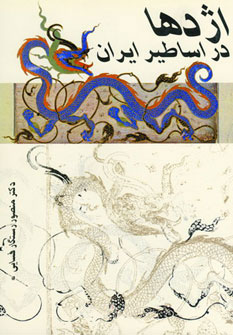 اژدها
در اساطیر ایران
دکتر منصور رستگار فسایی